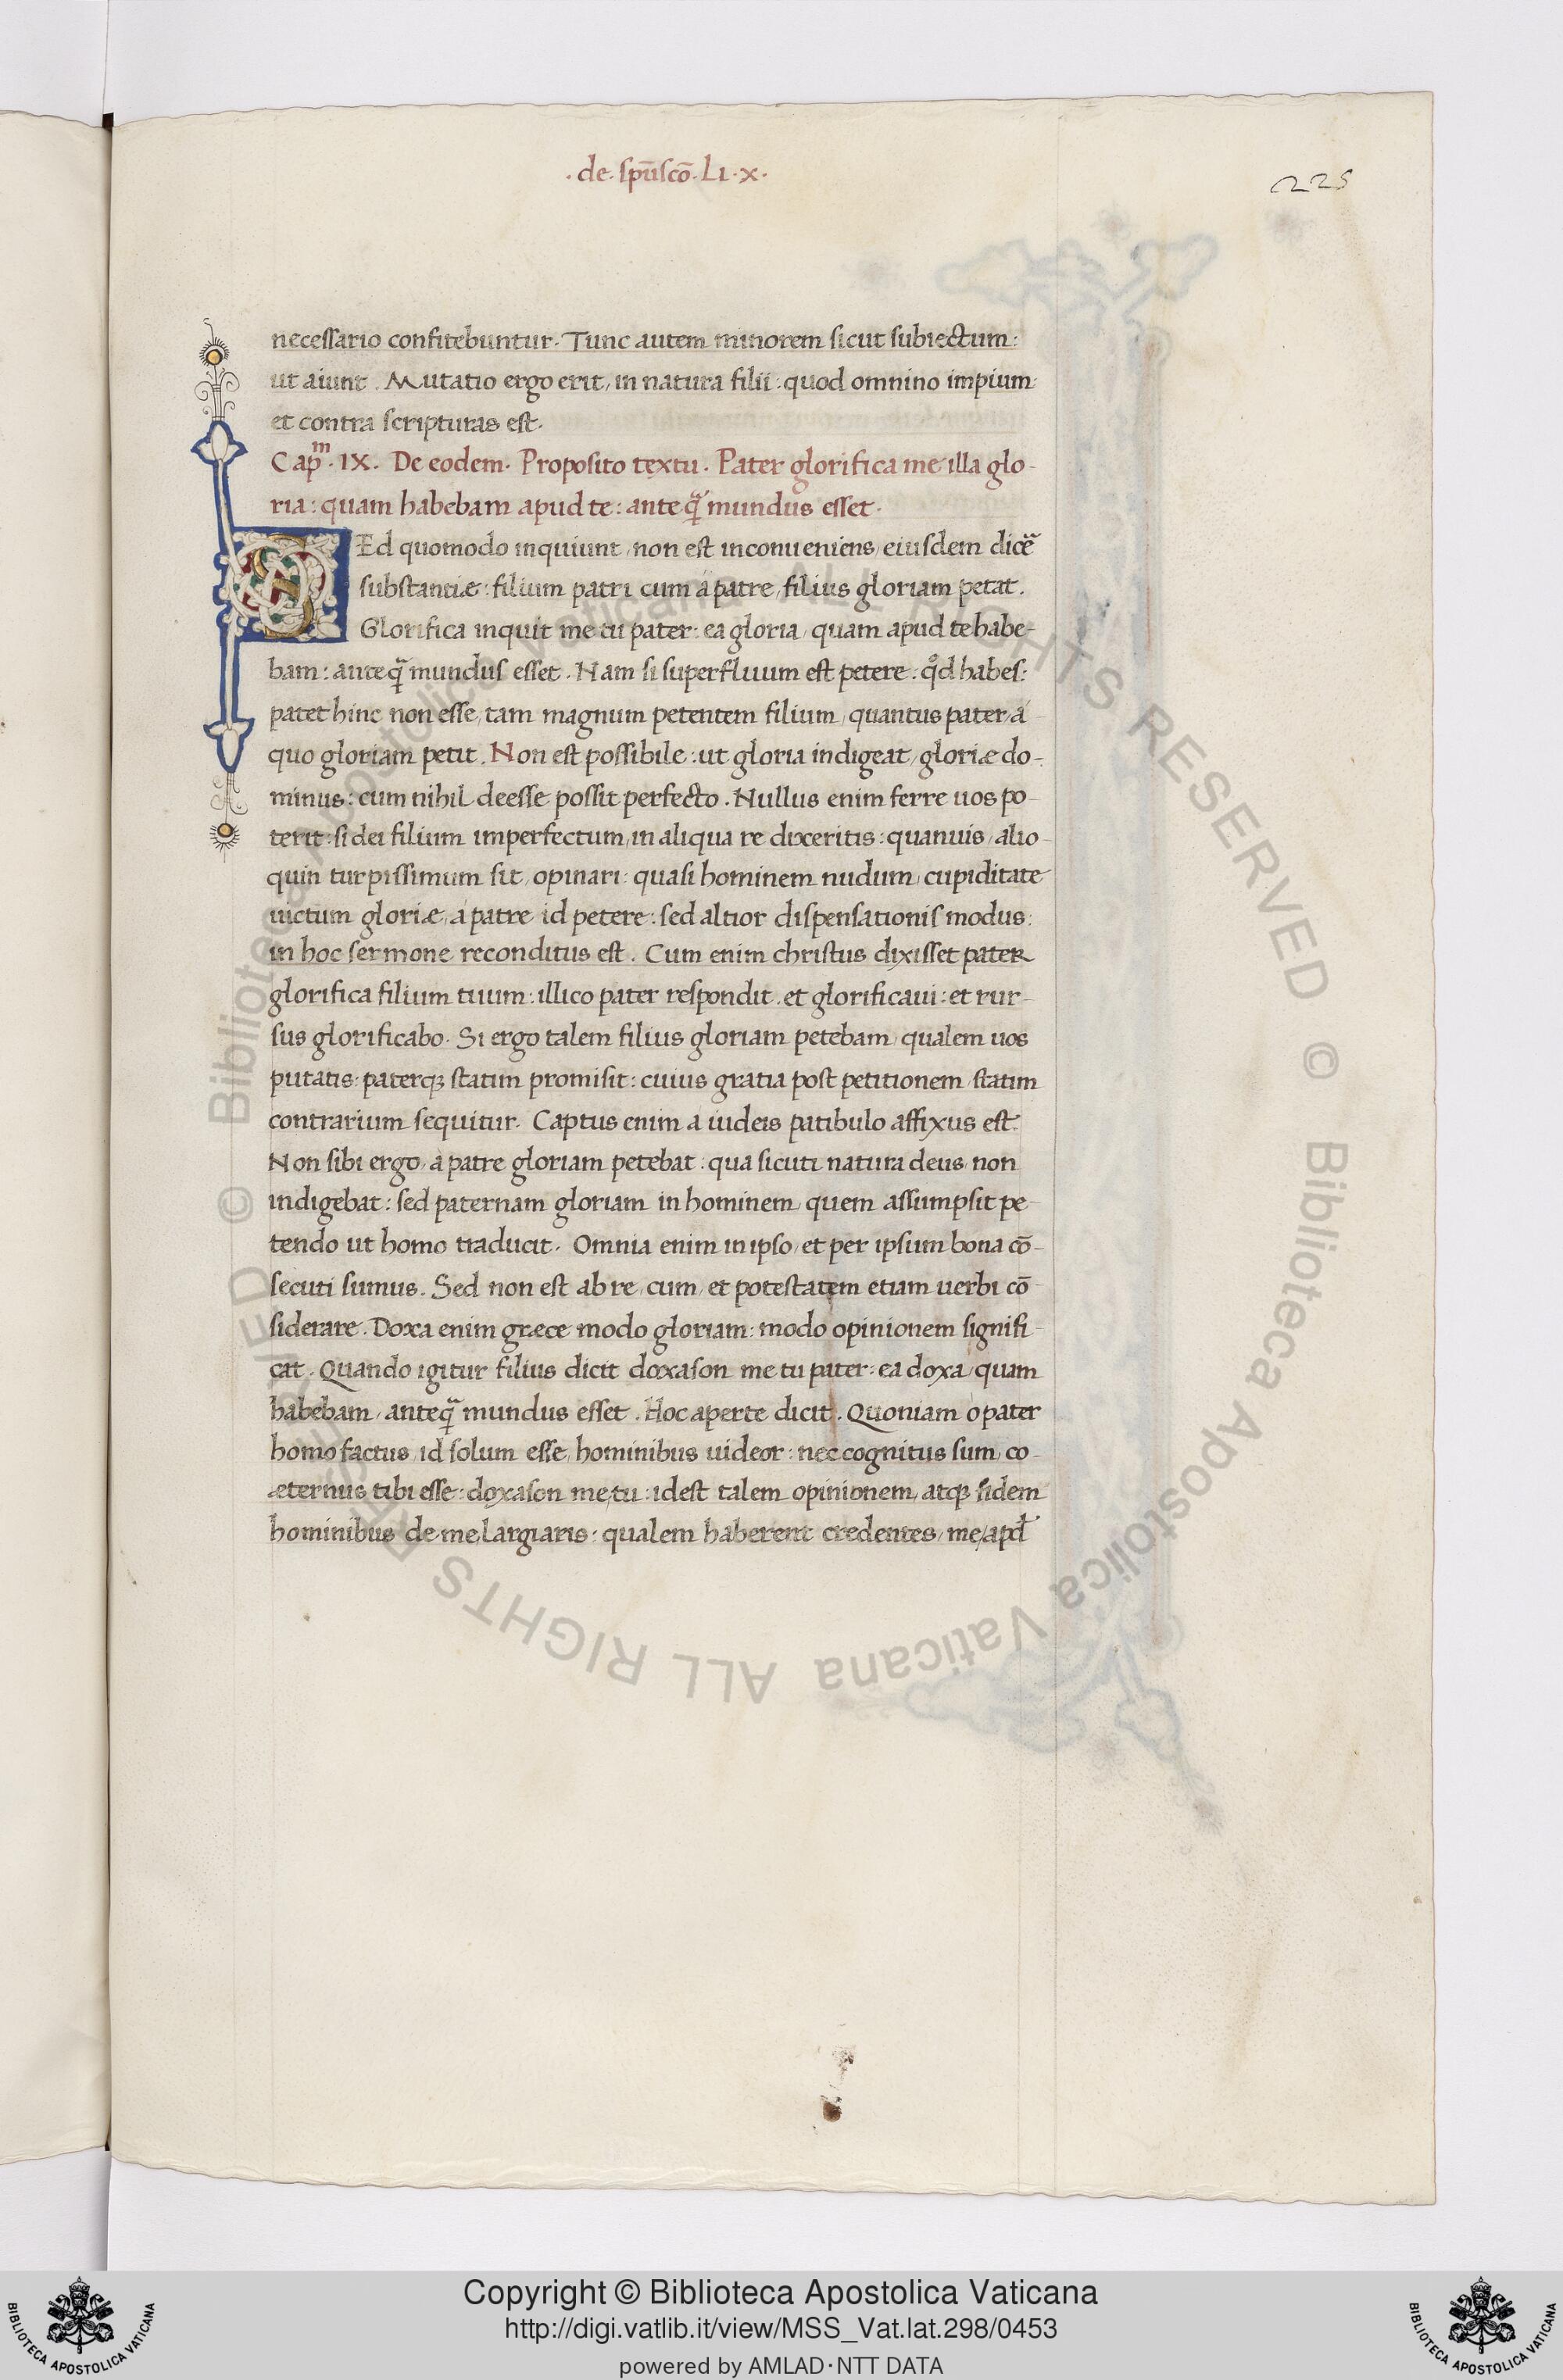 .de.spūscō.Lı.x.
225
necessario confitebuntur. Tunc autem minorem sicut subiectum:
ut aiunt. Mutatio ergo erit, in natura filii: quod omnino impium
et contra scripturas est.
Capᵐ. IX. De eodem. Proposito textu. Pater glorifica me illa glo-
ria: quam habebam apud te: anteq̃ mundus esset.
SEd quomodo inquiunt, non est inconueniens, eiusdem dicẽ
substantiæ: filium patri cum á patre, filius gloriam petat.
Glorifica inquit me tu pater: ea gloria, quam apud te habe-
bam: anteq̃ mundus esset. Nam si superfluum est petere: qͦd habes:
patet hinc non esse, tam magnum petentem filium, quantus pater, á
quo gloriam petit. Non est possibile: ut gloria indigeat, gloriæ do-
minus: cum nihil deesse possit perfecto. Nullus enim ferre uos po-
terit: si dei filium imperfectum, in aliqua re dixeritis: quanuis, alio-
quin turpissimum sit, opinari: quasi hominem nudum, cupiditate
uictum gloriæ, á patre id petere: sed altior dispensationis modus:
in hoc sermone reconditus est. Cum enim christus dixisset pater
glorifica filium tuum: illico pater respondit. et glorificaui: et rur-
sus glorificabo. Si ergo talem filius gloriam petebam, qualem uos
putatis: paterqȝ statim promisit: cuius gratia post petitionem, statim
contrarium sequitur. Captus enim a iudeis patibulo affixus est.
Non sibi ergo, à patre gloriam petebat: qua sicuti natura deus, non
indigebat: sed paternam gloriam in hominem, quem assumpsit pe-
tendo ut homo traducit. Omnia enim in ipso, et per ipsum bona cō-
secuti sumus. Sed non est ab re, cum, et potestatem etiam uerbi cō-
siderare. Doxa enim græce modo gloriam: modo opinionem signifi-
cat. Quando igitur filius dicit doxason me tu pater: ea doxa, quam
habebam, anteq̃ mundus esset. Hoc aperte dicit. Quoniam ò pater
homo factus, id solum esse, hominibus uideor: nec cognitus sum, co-
æternus tibi esse: doxason me, tu: idest talem opinionem, atqȝ fidem
hominibus de me, largiaris: qualem haberent credentes, me, apd̛
© Biblioteca Apostolica Vaticana ALL RIGHTS RESERVED © Biblioteca Apostolica Vaticana ALL RIGHTS RESERVED
Copyright © Biblioteca Apostolica Vaticana
http://digi.vatlib.it/view/MSS_Vat.lat.298/0453
powered by AMLAD·NTT DATA
BIBLIOTECA APOSTOLICA VATICANA
BIBLIOTECA APOSTOLICA VATICANA